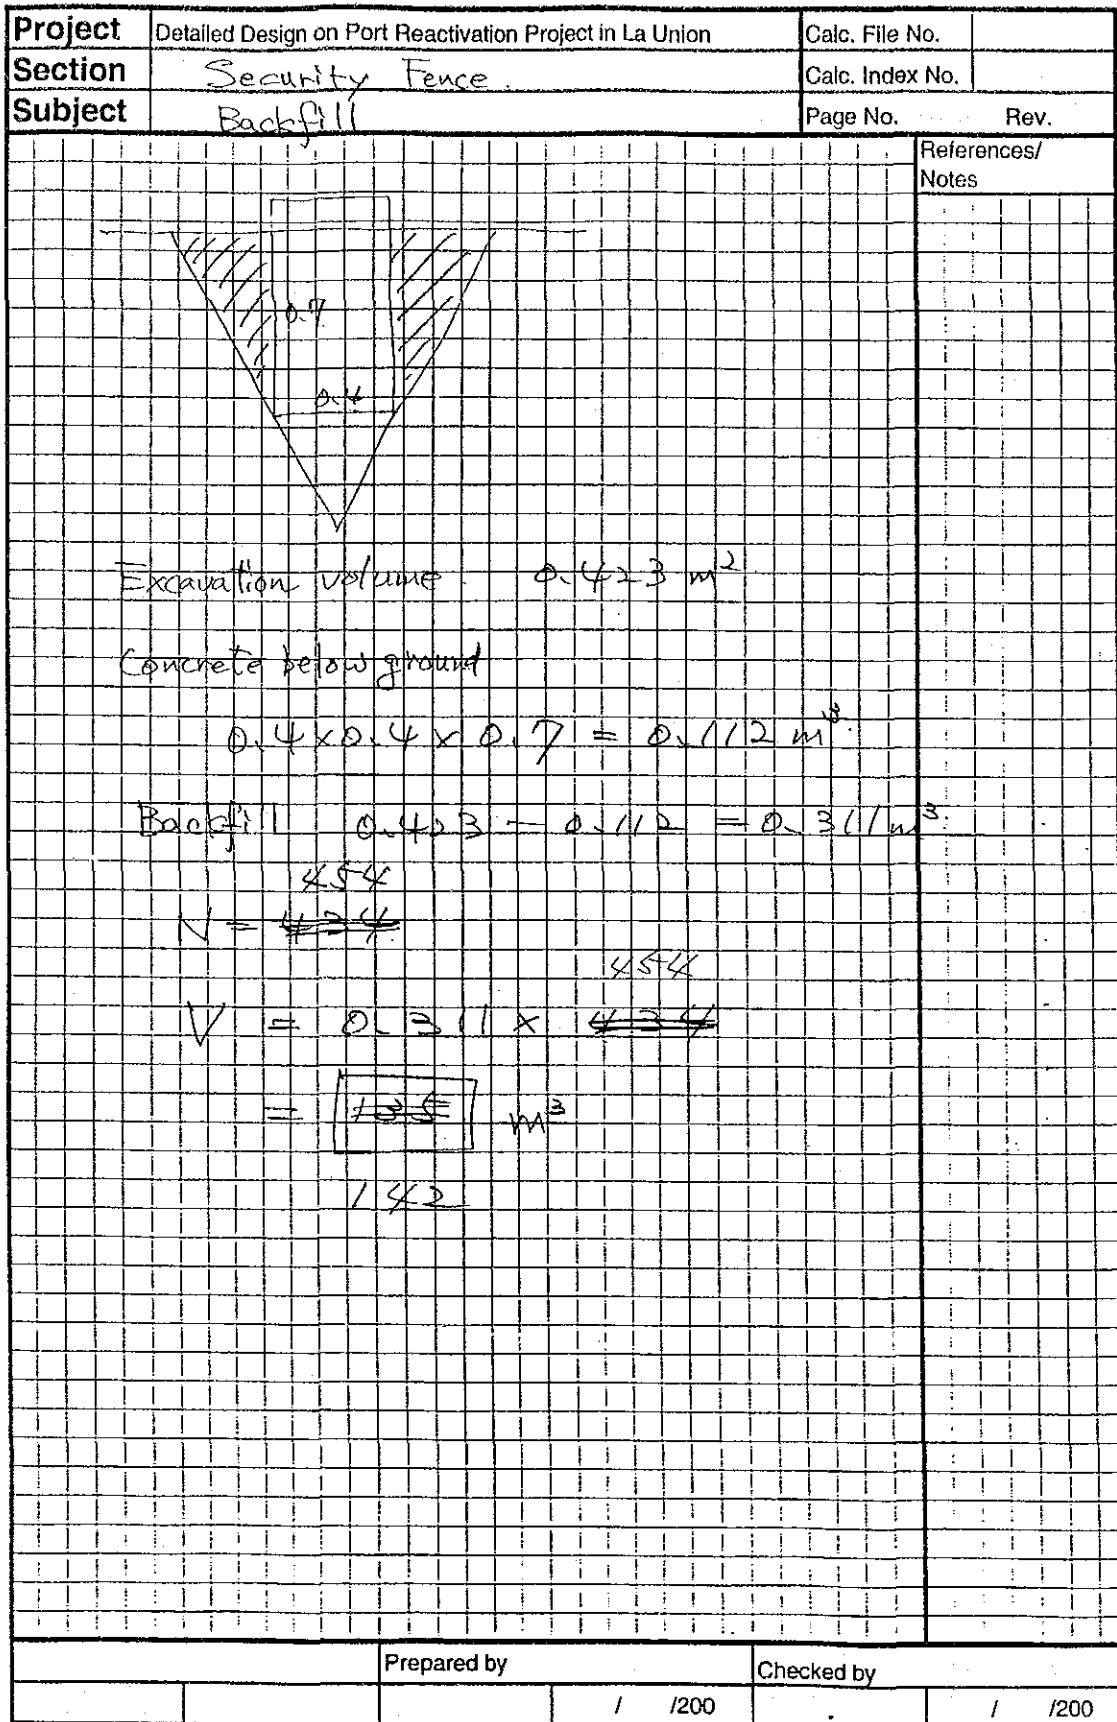 Project Detailed Design on Port Reactivation Project in La Union Calc. File No.
Section Security Fence. Calc. Index No.
Subject Backfill Page No. Rev.
References/
Notes
0.7
0.4
Excavation volume 0.423 m²
Concrete below ground
0.4 x 0.4 x 0.7 = 0.112 m³
Backfill 0.423 - 0.112 = 0.311 m³
454
N = 434
454
V = 0.311 x 434
= 135 m³
142
Prepared by Checked by
/ /200 / /200